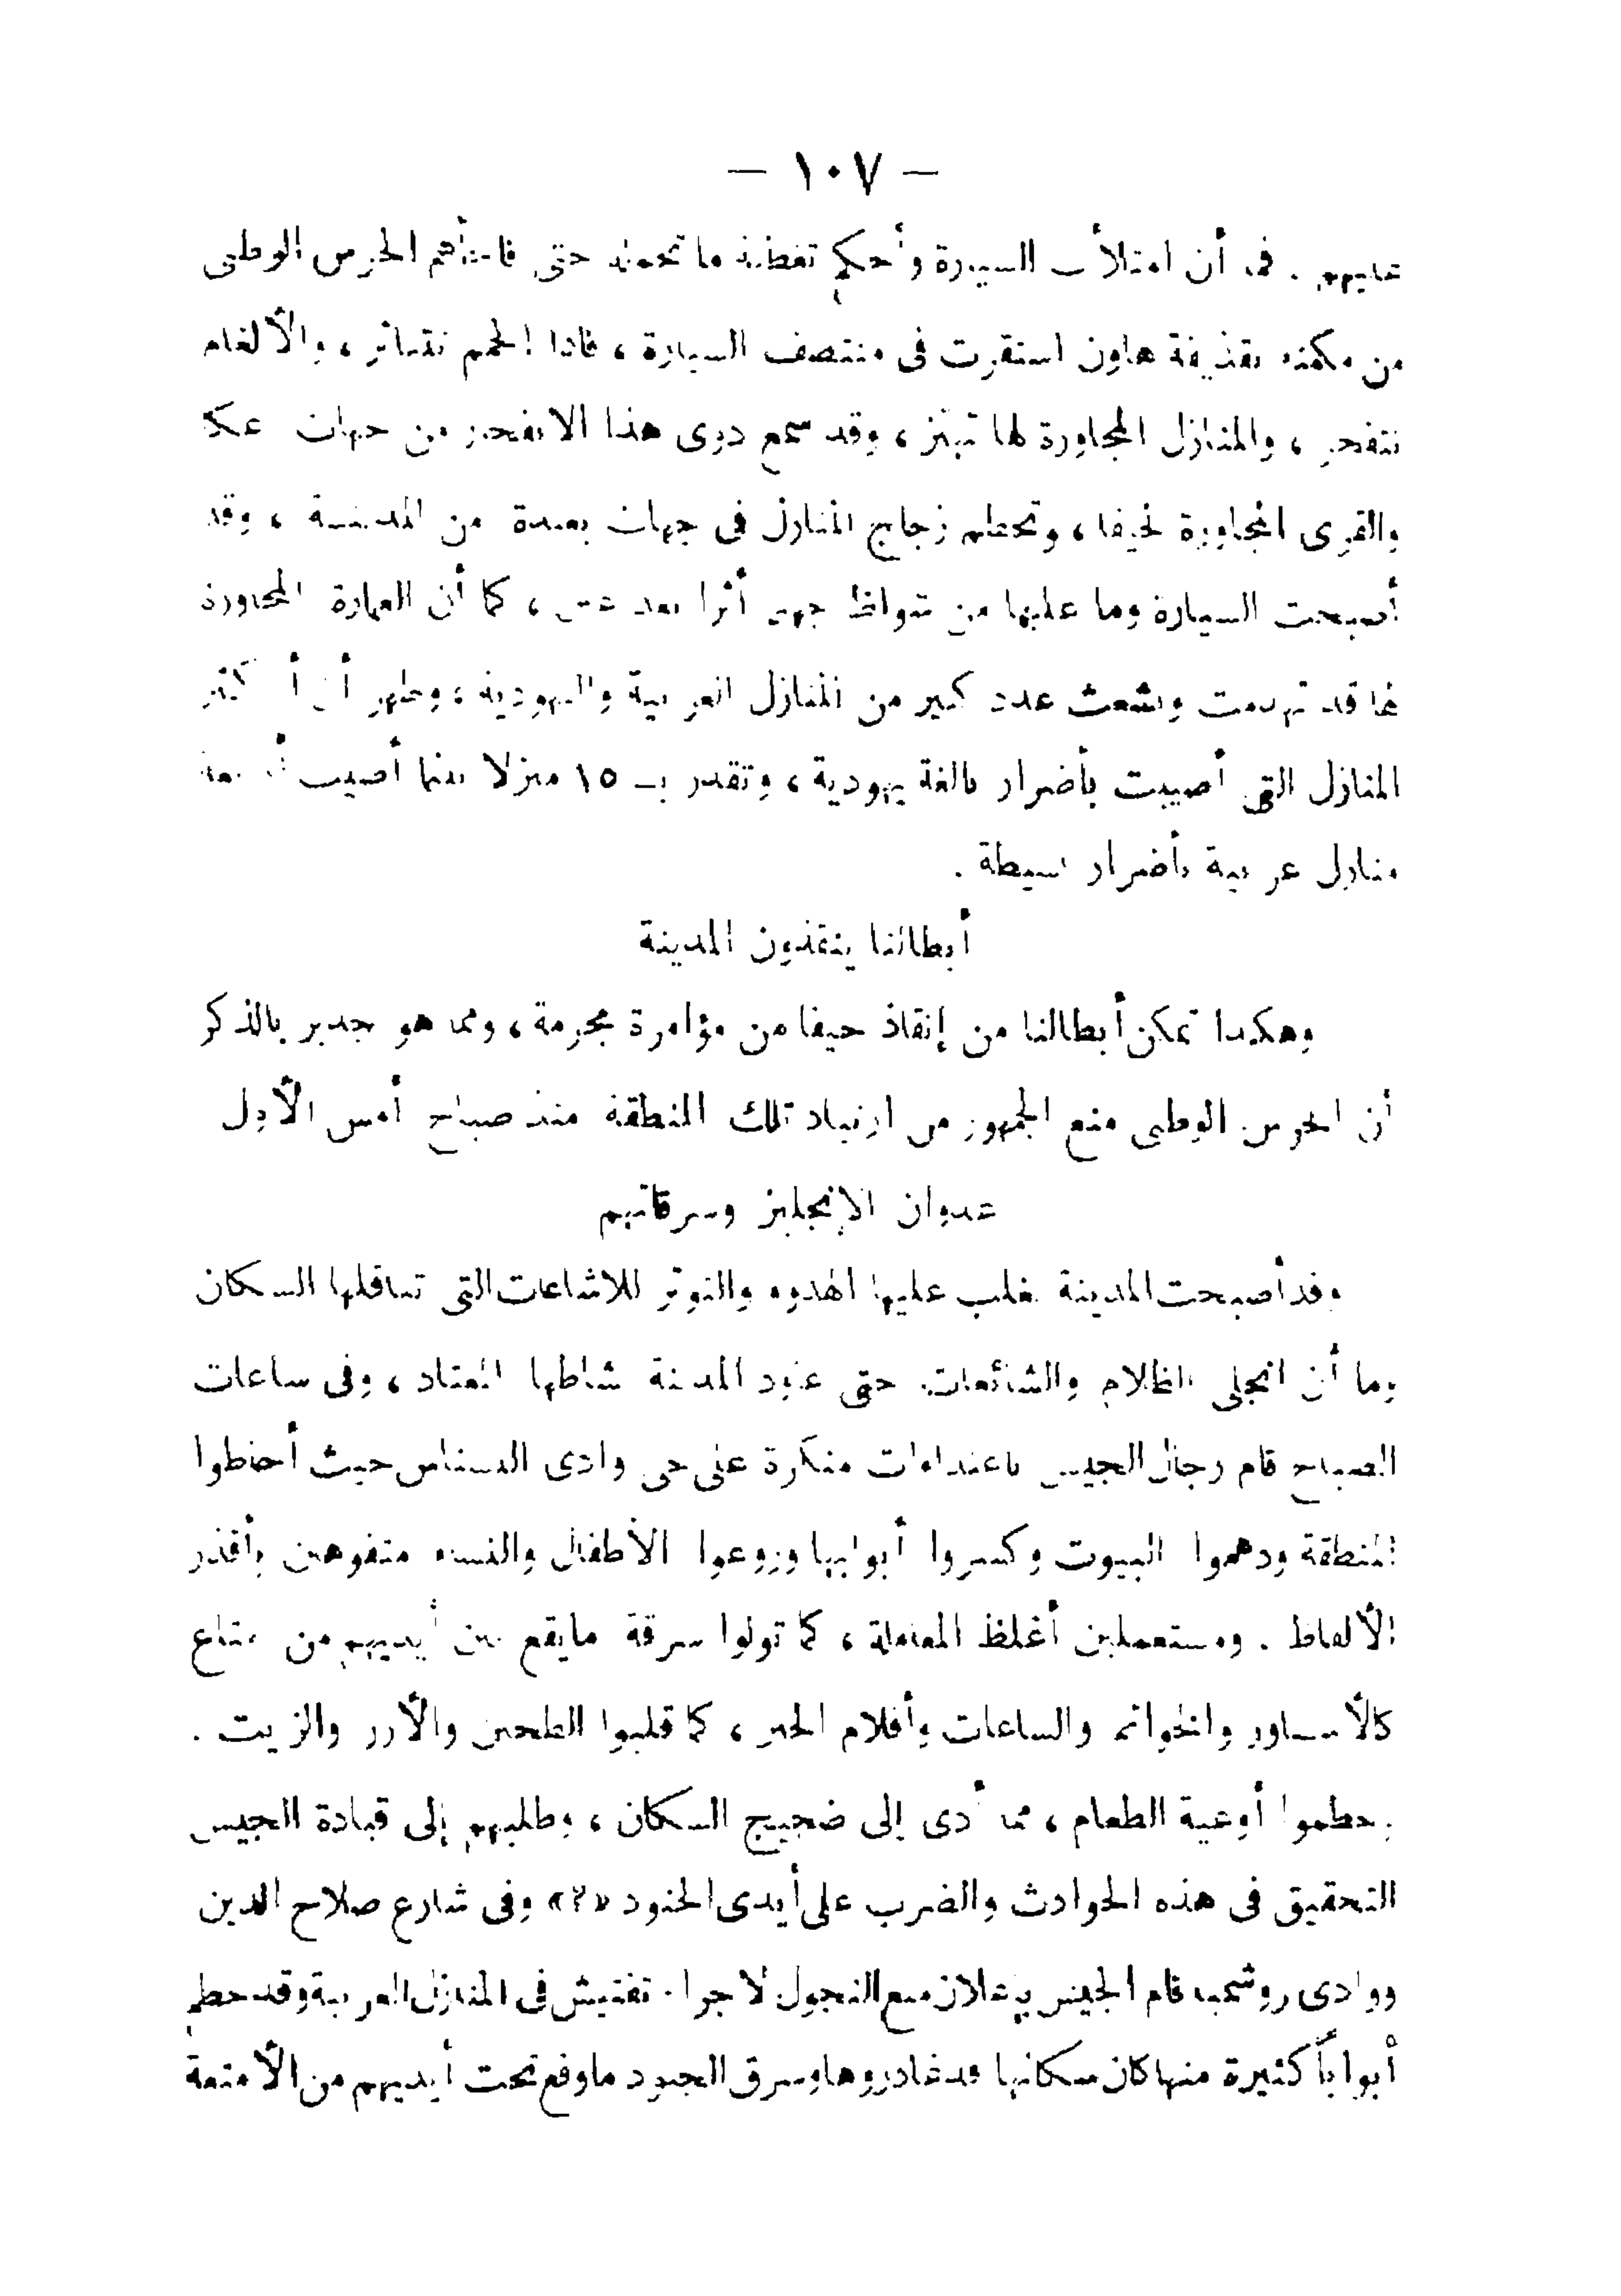 — ١٠٧ —
عليهم . فما أن امتلأت السيارة وأحكم تغطية ما تحمله حتى فاجأهم الحرس الوطنى
من مكمنه بقذيفة هاون استقرت فى منتصف السيارة ، فاذا الحمم تتناثر ، والألغام
تتفجر ، والمنازل المجاورة لها تهتز ، وقد سمع دوى هذا الانفجار من جهات عكا
والقرى المجاورة لحيفا ، وتحطم زجاج المنازل فى جهات بعيدة من المدينة ، وقد
أصبحت السيارة وما عليها من شواظ جهنم أثرا بعد عين ، كما أن العمارة المجاورة
لها قد تهدمت وتشعث عدد كبير من المنازل العربية واليهودية ، وظهر أن أكثر
المنازل التى أصيبت بأضرار بالغة يهودية ، وتقدر بـ ١٥ منزلا بينما أصيب أربعة
منازل عربية بأضرار بسيطة .
أبطالنا ينقذون المدينة
وهكذا تمكن أبطالنا من إنقاذ حيفا من مؤامرة مجرمة ، ومما هو جدير بالذكر
أن الحرس الوطنى منع الجمهور من ارتياد تلك المنطقة منذ صباح أمس الأول
عدوان الإنجليز وسرقاتهم
وقد أصبحت المدينة يغلب عليها الهدوء والتوتر للاشاعات التى تناقلها السكان
وما أن انجلى الظلام والشائعات حتى عاود المدينة نشاطها المعتاد ، وفى ساعات
الصباح قام رجال الجيش باعتداءات منكرة على حى وادى النسناس حيث أحاطوا
المنطقة ودهموا البيوت وكسروا أبوابها وروعوا الأطفال والنساء متفوهين بأقذر
الألفاظ . ومستعملين أغلظ المعاملة ، كما تولوا سرقة مايقع بين أيديهم من متاع
كالأساور والخواتم والساعات وأقلام الحبر ، كما قلبوا الطحين والأرز والزيت .
وحطموا أوعية الطعام ، مما أدى إلى ضجيج السكان ، وطلبهم إلى قيادة الجيش
التحقيق فى هذه الحوادث والضرب على أيدى الجنود «٢» وفى شارع صلاح الدين
ووادى روشميا قام الجيش باعلان منع التجول لاجراء تفتيش فى المنازل العربية وقد حطم
أبواباً كثيرة منها كان سكانها قد غادروها وسرق الجنود ماوقع تحت أيديهم من الأمتعة